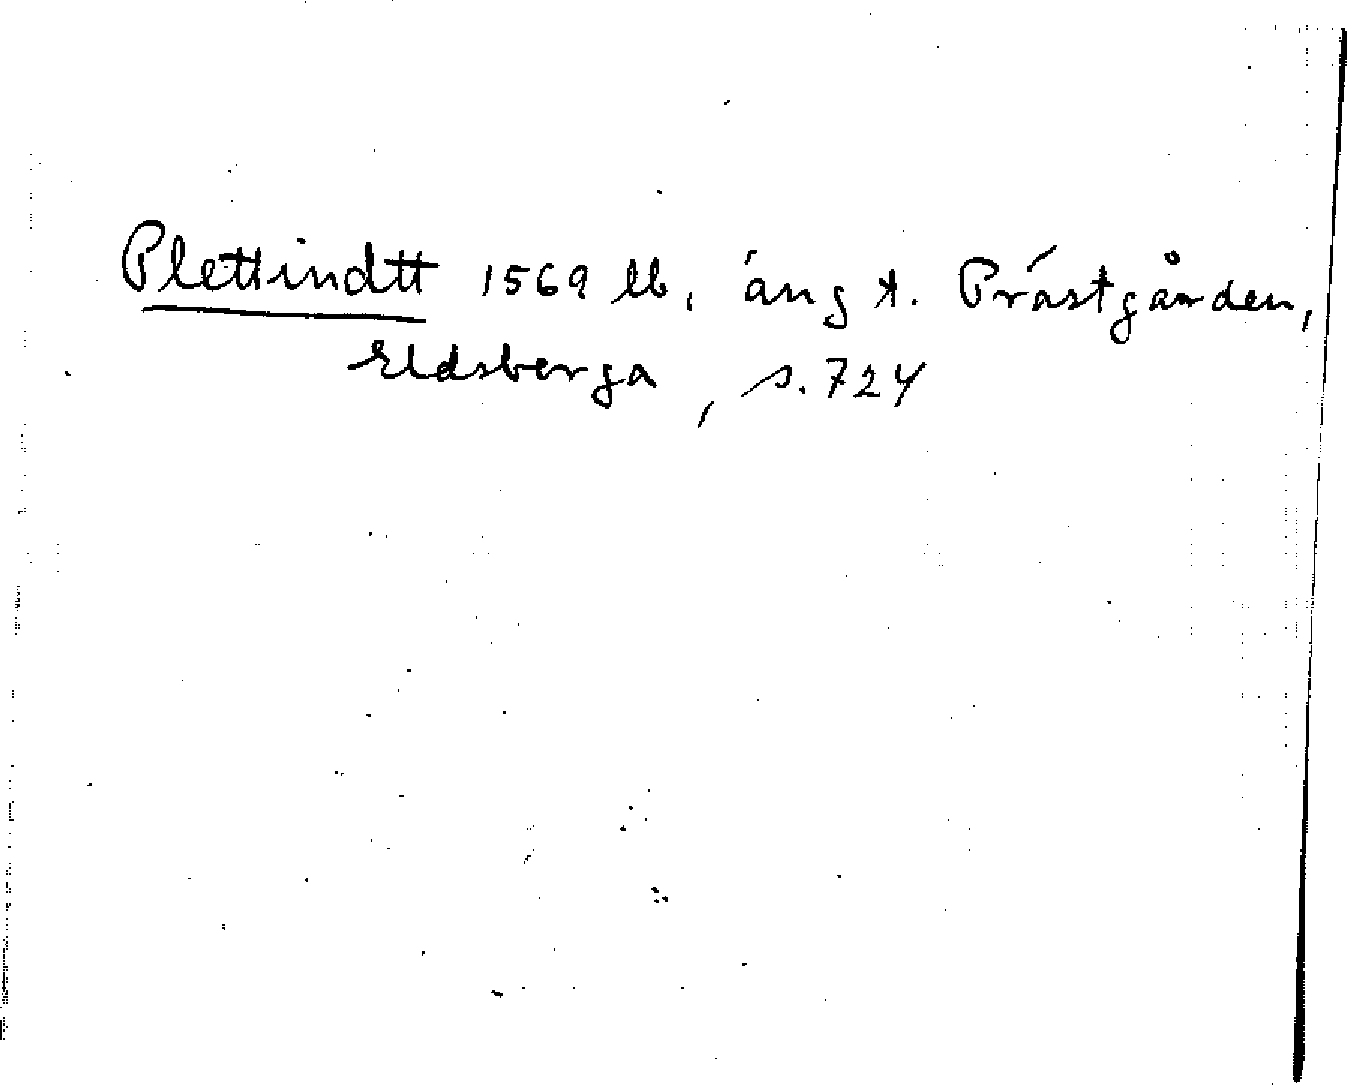 Plettindtt 1569 lb, äng t. Prästgården,
Eldsberga, s. 724